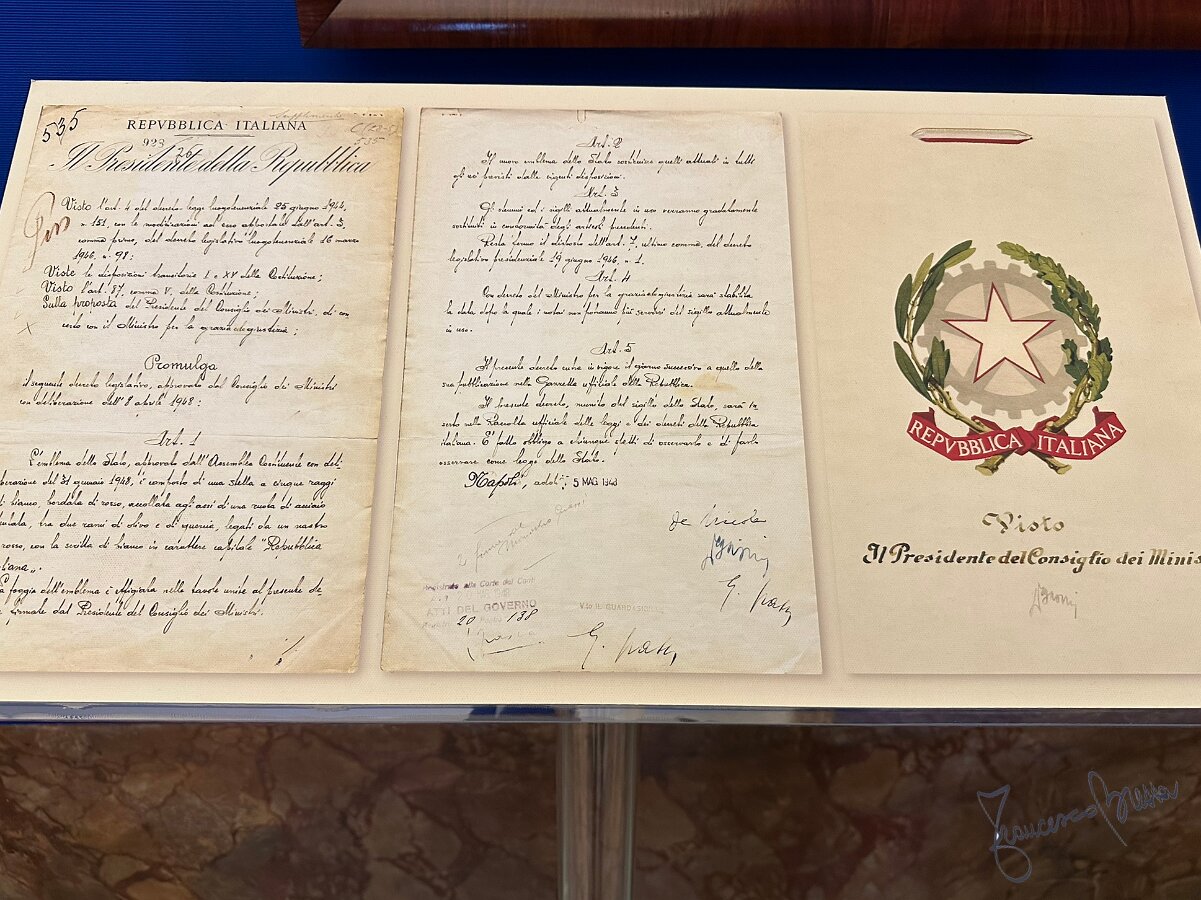 535
REPVBBLICA ITALIANA
535
Il Presidente della Repubblica
Visto l'art. 4 del decreto legge luogotenenziale 25 giugno 1944,
n. 151, con le modificazioni ad esso apportate dall'art. 3,
comma primo, del decreto legislativo luogotenenziale 16 marzo
1946, n. 98;
Viste le disposizioni transitorie I e XV della Costituzione;
Visto l'art. 87, comma V, della Costituzione;
Sulla proposta del Presidente del Consiglio dei Ministri, di con
certo con il Ministro per la grazia e giustizia;
Promulga
il seguente decreto legislativo, approvato dal Consiglio dei Ministri
con deliberazione dell'8 aprile 1948:
Art. 1
L'emblema dello Stato, approvato dall'Assemblea Costituente con deli
berazione del 31 gennaio 1948, è composto di una stella a cinque raggi
di bianco, bordata di rosso, accollata agli assi di una ruota di acciaio
dentata, tra due rami di olivo e di quercia, legati da un nastro
rosso, con la scritta di bianco in carattere capitale "Repubblica
iana".
La foggia dell'emblema è effigiata nelle tavole unite al presente de
firmate dal Presidente del Consiglio dei Ministri.
Art. 2
Il nuovo emblema dello Stato sostituisce quelli attuali in tutti
gli usi previsti dalle vigenti disposizioni.
Art. 3
Gli stemmi ed i sigilli attualmente in uso verranno gradatamente
sostituiti in conformità degli articoli precedenti.
Resta fermo il disposto dell'art. 7, ultimo comma, del decreto
legislativo presidenziale 19 giugno 1946, n. 1.
Art. 4
Con decreto del Ministro per la grazia e giustizia sarà stabilita
la data dopo la quale i notai non potranno più servirsi del sigillo attualmente
in uso.
Art. 5
Il presente decreto entra in vigore il giorno successivo a quello della
sua pubblicazione nella Gazzetta ufficiale della Repubblica.
Il presente decreto, munito del sigillo dello Stato, sarà in
serto nella Raccolta ufficiale delle leggi e dei decreti della Repubblica
italiana. E' fatto obbligo a chiunque spetti di osservarlo e di farlo
osservare come legge dello Stato.
Napoli, addì 5 MAG 1948
De Nicola
G. Grassi
Registrato alla Corte dei Conti
ATTI DEL GOVERNO
20 138
Visto IL GUARDASIGILLI
G. Grassi
REPVBBLICA ITALIANA
Visto
Il Presidente del Consiglio dei Minis
Francesco Bressa